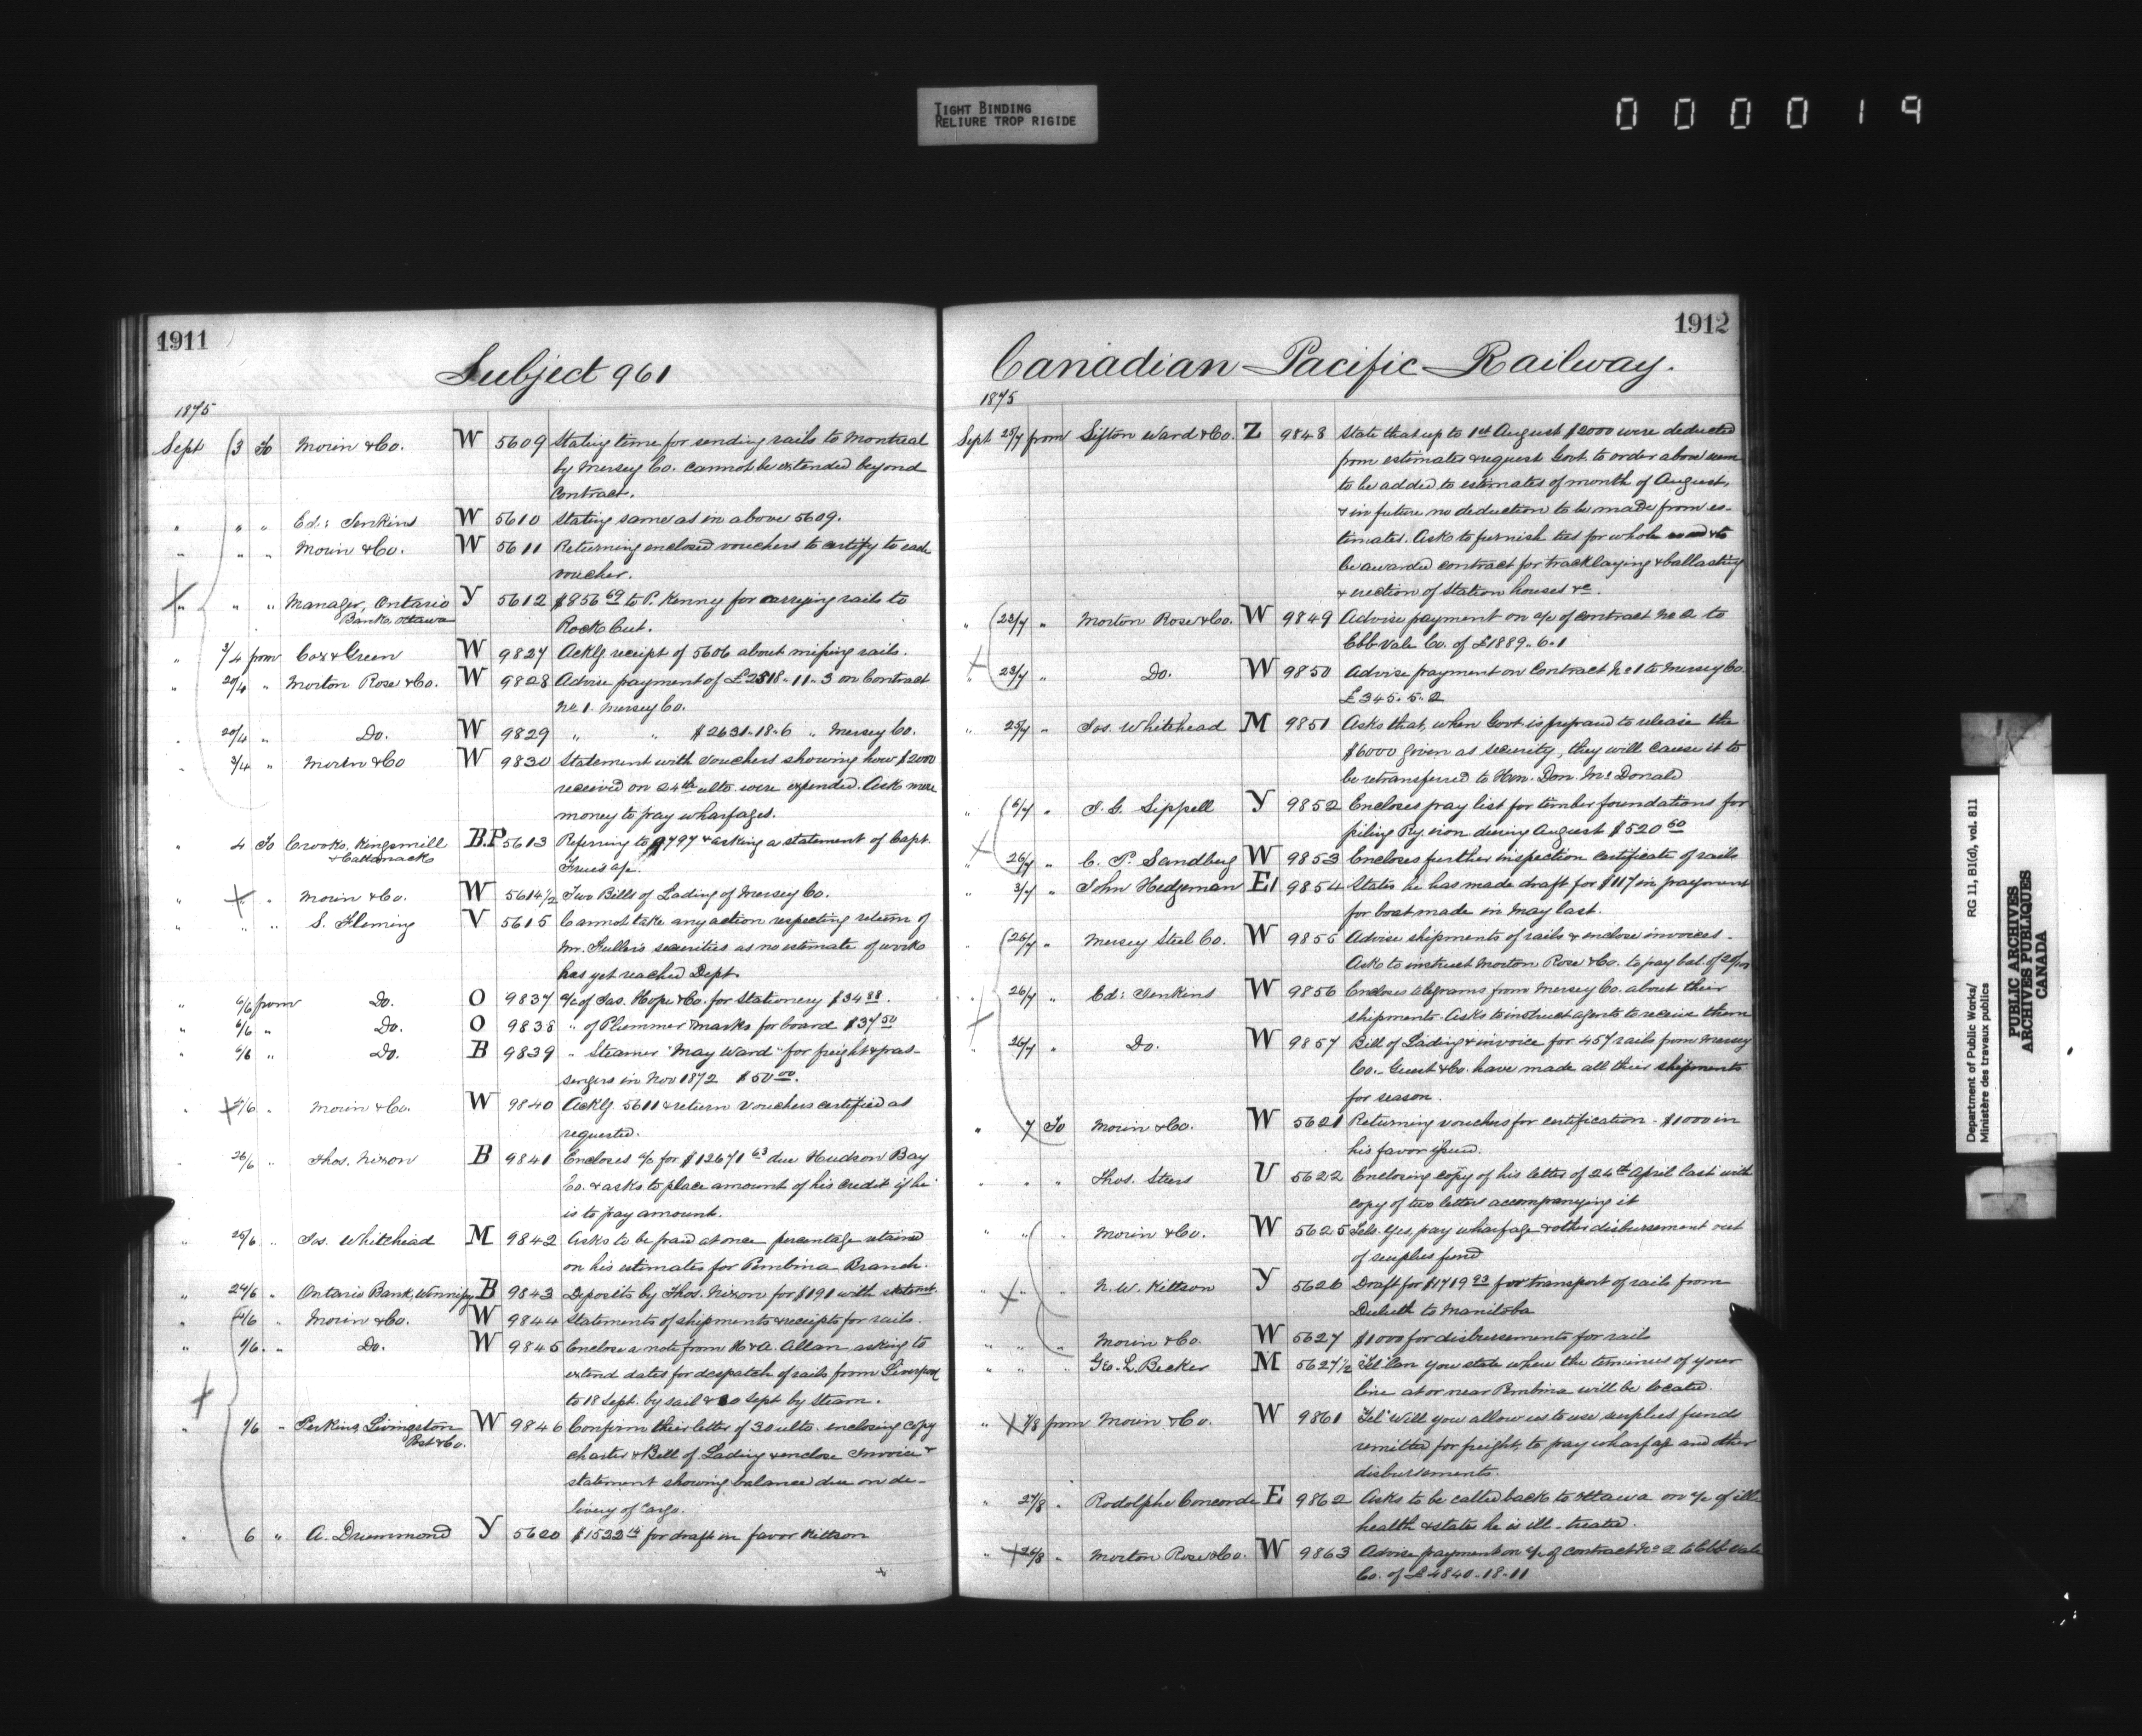 TIGHT BINDING
RELIURE TROP RIGIDE
000019
1911
Subject 961
1875
Sept (3 To Morin & Co. W 5609 Stating time for sending rails to Montreal
by Mersey Co. cannot be extended beyond
contract.
" " " Ed: Jenkins W 5610 Stating same as in above 5609.
" " " Morin & Co. W 5611 Returning enclosed vouchers to certify to each
voucher.
" " " Manager, Ontario Y 5612 $856 69 to P. Kenny for carrying rails to
Bank, Ottawa
Rock Cut.
" 3/4 from Cox & Green W 9827 Ackg receipt of 5606 about missing rails.
" 20/4 " Morton Rose & Co. W 9828 Advise payment of £2518-11-3 on Contract
No 1. Mersey Co.
" 20/4 " Do. W 9829 " " $2631-18-6 " Mersey Co.
" 3/4 " Morin & Co W 9830 Statement with vouchers showing how $2000
received on 24th ulto. were expended. Ask more
money to pay wharfages.
" 4 To Crooks, Kingsmill B.P 5613 Referring to 9797 & asking a statement of Capt.
& Cattanach
a/c.
" " " Morin & Co. W 5614 1/2 Two Bills of Lading of Mersey Co.
" " " S. Fleming V 5615 Cannot take any action respecting return of
Mr. Fuller's securities as no estimate of works
has yet reached Dept.
" 6/6 from Do. O 9837 a/c of Jas. Hope & Co. for Stationery $34 88.
" 6/6 " Do. O 9838 " of Plummer & Marks for board $37 50
" 6/6 " Do. B 9839 " Steamer "May Ward" for freight & pas-
sengers in Nov 1872 $50 00.
" 4/6 " Morin & Co. W 9840 Ackg. 5611 & return vouchers certified as
requested.
" 26/6 " Thos. Nixon B 9841 Encloses a/c for $12671 63 due Hudson Bay
Co. & asks to place amount of his credit if he
is to pay amount.
" 25/6 " Jos. Whitehead M 9842 Asks to be paid at once percentage retained
on his estimates for Pembina Branch.
" 24/6 " Ontario Bank, Winnipeg B 9843 Deposits by Thos. Nixon for $191 with statemt.
" 6/6 " Morin & Co. W 9844 Statements of shipments & receipts for rails.
" 1/6 " Do. W 9845 Enclose a note from H & A. Allan asking to
extend dates for despatch of rails from Liverpool
to 18 Sept. by sail & 30 Sept by Steam.
" 1/6 " Perkins, Livingston W 9846 Confirm their letter of 30 ulto. enclosing copy
Post & Co.
charter & Bill of Lading & enclose Invoice &
statement showing balance due on de-
livery of Cargo.
" 6 " A. Drummond Y 5620 $1522 14 for draft in favor Kittson
1912
Canadian Pacific Railway.
1875
Sept 25/7 from Sifton Ward & Co. Z 9848 State that up to 1st August $2000 were deducted
from estimates & request Govt. to order above sum
to be added to estimates of month of August,
& in future no deduction to be made from es-
timates. Ask to furnish ties for whole & to
be awarded contract for tracklaying & ballasting
& erection of Station houses &c.
" (23/7 " Morton Rose & Co. W 9849 Advise payment on a/c of contract No 2 to
Ebb Vale Co. of £1889-6-1
" 23/7 " Do. W 9850 Advise payment on Contract No 1 to Mersey Co.
£345-5-2
" 25/7 " Jos. Whitehead M 9851 Asks that, when Govt. is prepared to release the
$6000 given as security, they will cause it to
be retransferred to Hon. Don. McDonald
" (6/7 " J. G. Sippell Y 9852 Encloses pay list for timber foundations for
piling Ry. iron during August $520 50
" 26/7 " C. P. Sandberg W 9853 Encloses further inspection certificate of rails
" 3/7 " John Hedgeman E1 9854 States he has made draft for $117 in payment
for boat made in May last.
" (26/7 " Mersey Steel Co. W 9855 Advise shipments of rails & enclose invoices.
Ask to instruct Morton Rose & Co. to pay bal. of
" 26/7 " Ed: Jenkins W 9856 Encloses telegrams from Mersey Co. about their
shipments. Asks to instruct agents to receive them
" 26/7 " Do. W 9857 Bill of Lading & invoice for 457 rails from Mersey
Co. Guest & Co. have made all their shipments
for season.
" 7 To Morin & Co. W 5621 Returning vouchers for certification - $1000 in
his favor issued.
" " " Thos. Steers U 5622 Enclosing copy of his letter of 24th April last with
copy of two letters accompanying it
" " " Morin & Co. W 5625 Tels. Yes, pay wharfage & other disbursement out
of surplus fund
" " " N. W. Kittson Y 5626 Draft for $1719 93 for transport of rails from
Duluth to Manitoba
" " " Morin & Co. W 5627 $1000 for disbursements for rails
" " " Geo. L. Becker M 5627 1/2 "Tel" Can you state where the terminus of your
line at or near Pembina will be located.
" 7/8 from Morin & Co. W 9861 "Tel" Will you allow us to use surplus funds
remitted for freight, to pay wharfage and other
disbursements.
" 27/8 " Rodolphe Concorde E 9862 Asks to be called back to Ottawa on a/c of ill-
health & states he is ill-treated.
" 26/8 " Morton Rose & Co. W 9863 Advise payment on a/c of contract No 2 to Ebb Vale
Co. of £4840-18-11
Department of Public Works/
Ministère des travaux publics
RG 11, B1(d), vol. 811
PUBLIC ARCHIVES
ARCHIVES PUBLIQUES
CANADA